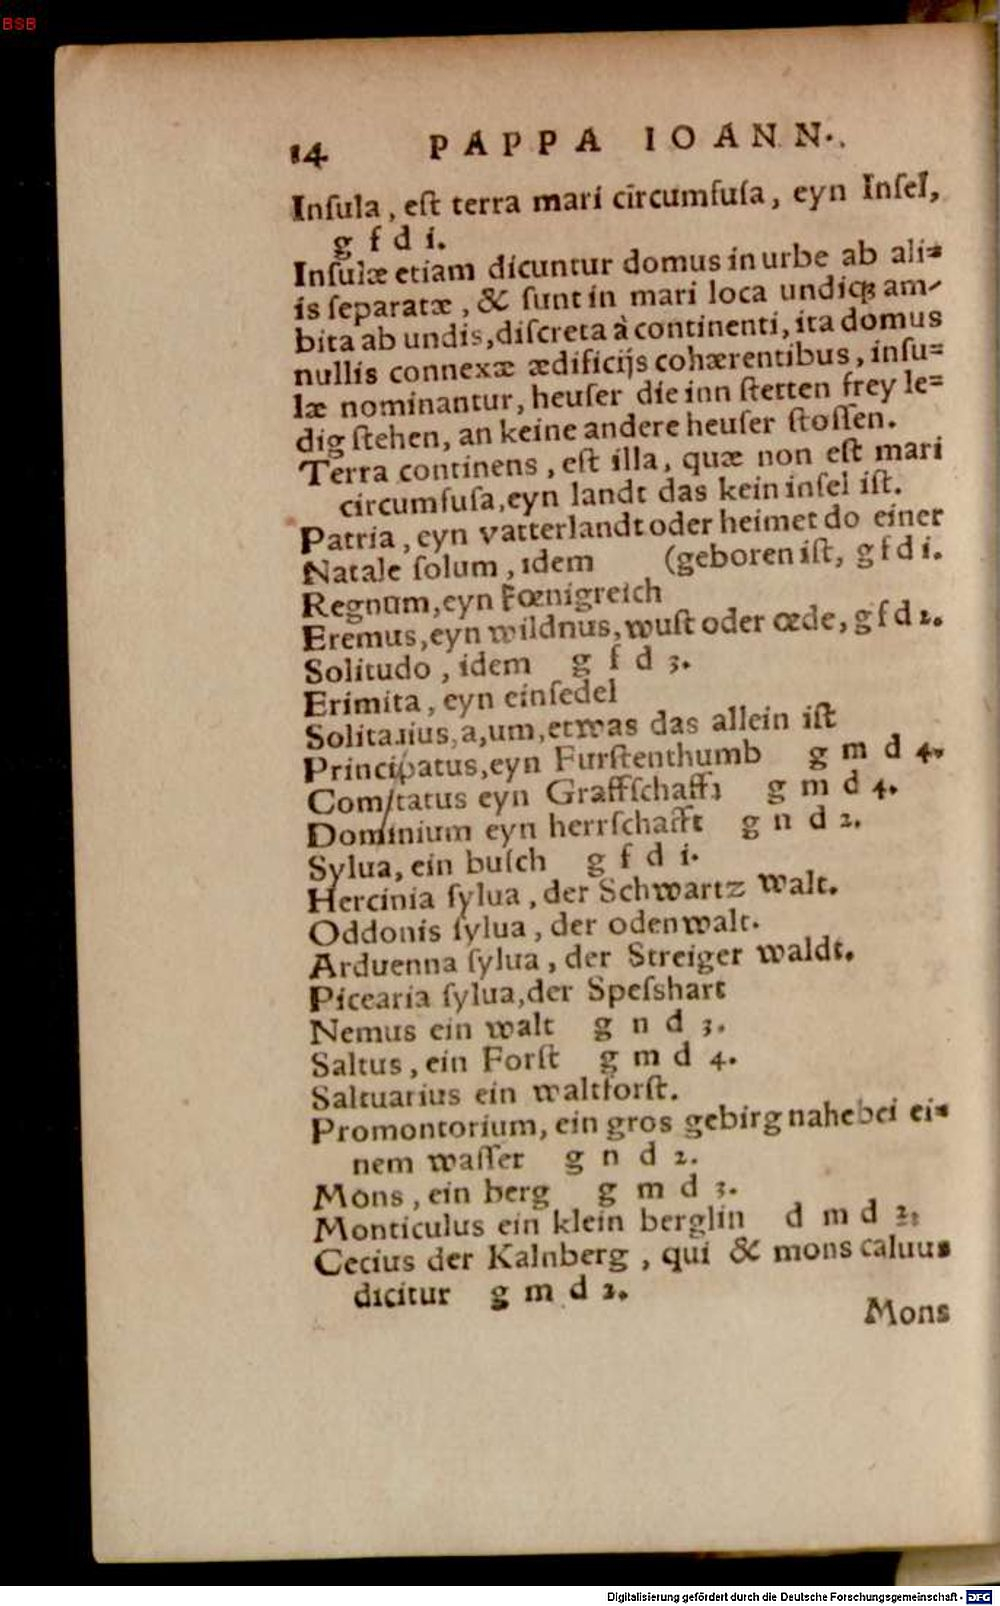 BSB
14 PAPPA IOANN.
Inſula, eſt terra mari circumfuſa, eyn Inſel,
g f d i.
Inſulæ etiam dicuntur domus in urbe ab ali=
is ſeparatæ, & ſunt in mari loca undiqꝫ am-
bita ab undis, diſcreta à continenti, ita domus
nullis connexæ ædificijs cohærentibus, inſu=
læ nominantur, heuſer die inn ſtetten frey le=
dig ſtehen, an keine andere heuſer ſtoſſen.
Terra continens, eſt illa, quæ non eſt mari
circumfuſa, eyn landt das kein inſel iſt.
Patria, eyn vatterlandt oder heimet do einer
Natale ſolum, idem (geboren iſt, g f d i.
Regnum, eyn kœnigreich
Eremus, eyn wildnus, wuſt oder œde, g f d 2.
Solitudo, idem g f d 3.
Erimita, eyn einſedel
Solitarius, a, um, etwas das allein iſt
Principatus, eyn Furſtenthumb g m d 4.
Comitatus eyn Graffſchafft g m d 4.
Dominium eyn herrſchafft g n d 2.
Sylua, ein buſch g f d i.
Hercinia ſylua, der Schwartz walt.
Oddonis ſylua, der odenwalt.
Arduenna ſylua, der Streiger waldt.
Picearia ſylua, der Speſshart
Nemus ein walt g n d 3.
Saltus, ein Forſt g m d 4.
Saltuarius ein waltforſt.
Promontorium, ein gros gebirg nahe bei ei=
nem waſſer g n d 2.
Mons, ein berg g m d 3.
Monticulus ein klein berglin d m d 2.
Cecius der Kalnberg, qui & mons caluus
dicitur g m d 2.
Mons
Digitalisierung gefördert durch die Deutsche Forschungsgemeinschaft - DFG